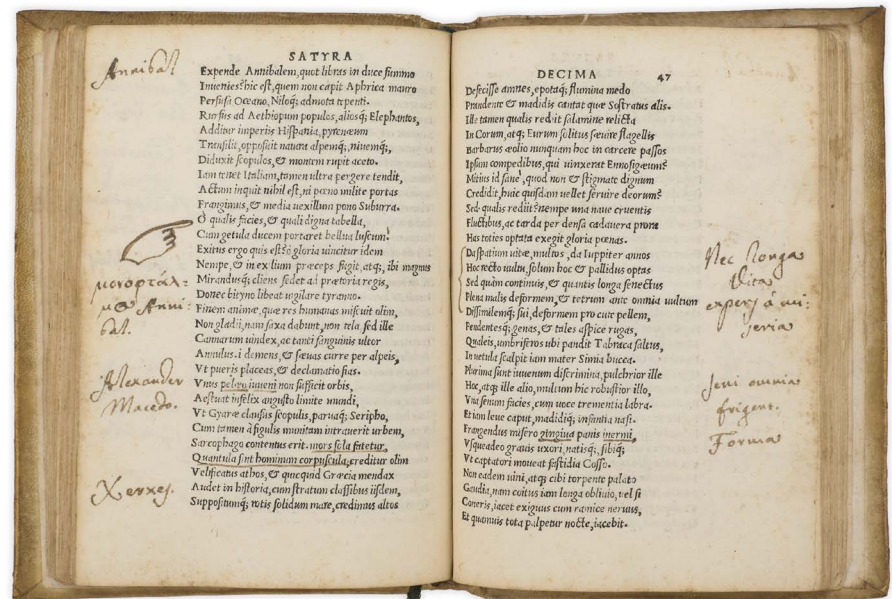 SATYRA
Annibal
Expende Annibalem, quot libras in duce summo
Inuenies? hic est, quem non capit Aphrica mauro
Persusa Oceano, Niloq; admota tepenti.
Rursus ad Aethiopum populos, aliosq; Elephantos,
Additur imperiis Hispania, pyrenæum
Transilit, opposuit natura alpemq;, niuemq;,
Diduxit scopulos, & montem rupit aceto.
Iam tenet Italiam, tamen ultra pergere tendit,
Actum inquit nihil est, ni pœno milite portas
Frangimus, & media uexillum pono Suburra.
O qualis facies, & quali digna tabella,
Cum getula ducem portaret bellua luscum!
Exitus ergo quis est? ô gloria uincitur idem
Nempe, & in exilium præceps fugit, atq;, ibi magnus
Mirandusq; cliens sedet ad prætoria regis,
Donec bityno libeat uigilare tyranno.
Finem animæ, quæ res humanas miscuit olim,
Non gladii, nam saxa dabunt, non tela, sed ille
Cannarum uindex, ac tanti sanguinis ultor
Annulus. i demens, & sæuas curre per alpeis,
Vt pueris placeas, & declamatio fias.
Vnus pelleo iuueni non sufficit orbis,
Aestuat infelix angusto limite mundi,
Vt Gyaræ clausus scopulis, paruaq; Seripho,
Cum tamen à figulis munitam intrauerit urbem,
Sarcophago contentus erit. mors sola fatetur,
Quantula sint hominum corpuscula, creditur olim
Velificatus athos, & quicquid Græcia mendax
Audet in historia, cum stratum classibus iisdem,
Suppositumq; rotis solidum mare, credimus altos
Anni-
bal.
Alexander
Macedo.
Xerxes.
DECIMA 47
Defecisse amnes, epotaq; flumina medo
Prandente & madidis cantat quæ Sostratus alis.
Ille tamen qualis rediit salamine relicta
In Corum, atq; Eurum solitus sæuire flagellis
Barbarus æolio nunquam hoc in carcere passos
Ipsum compedibus, qui uinxerat Ennosigæum?
Mitius id sane, quod non & stigmate dignum
Credidit, huic quisdam uellet seruire deorum?
Sed qualis rediit? nempe una naue cruentis
Fluctibus, ac tarda per densa cadauera prora
Has toties optata exegit gloria pœnas.
Da spatium uitæ, multos, da Iuppiter annos
Hoc recto uultu, solum hoc & pallidus optas
Sed quàm continuis, & quantis longa senectus
Plena malis, deformem, & tetrum ante omnia uultum
Dissimilemq; sui, deformem pro cute pellem,
Pendentesq; genas, & tales aspice rugas,
Qualeis, umbriferos ubi pandit Tabraca saltus,
In uetula scalpit iam mater Simia bucca.
Plurima sunt iuuenum discrimina, pulchrior ille
Hoc, atq; ille alio, multum hic robustior illo,
Vna senum facies, cum uoce trementia labra.
Et iam leue caput, madidiq; infantia nasi.
Frangendus misero gingiua panis inermi,
Vsqueadeo grauis uxori, natisq;, sibiq;
Vt captatori moueat fastidia Cosso.
Non eadem uini, atq; cibi torpente palato
Gaudia, nam coitus iam longa obliuio, uel si
Coneris, iacet exiguus cum ramice neruus,
Et quamuis tota palpetur nocte, iacebit.
Nec longa
Vita
expers à mi-
seria
seni omnia
frigent.
Forma